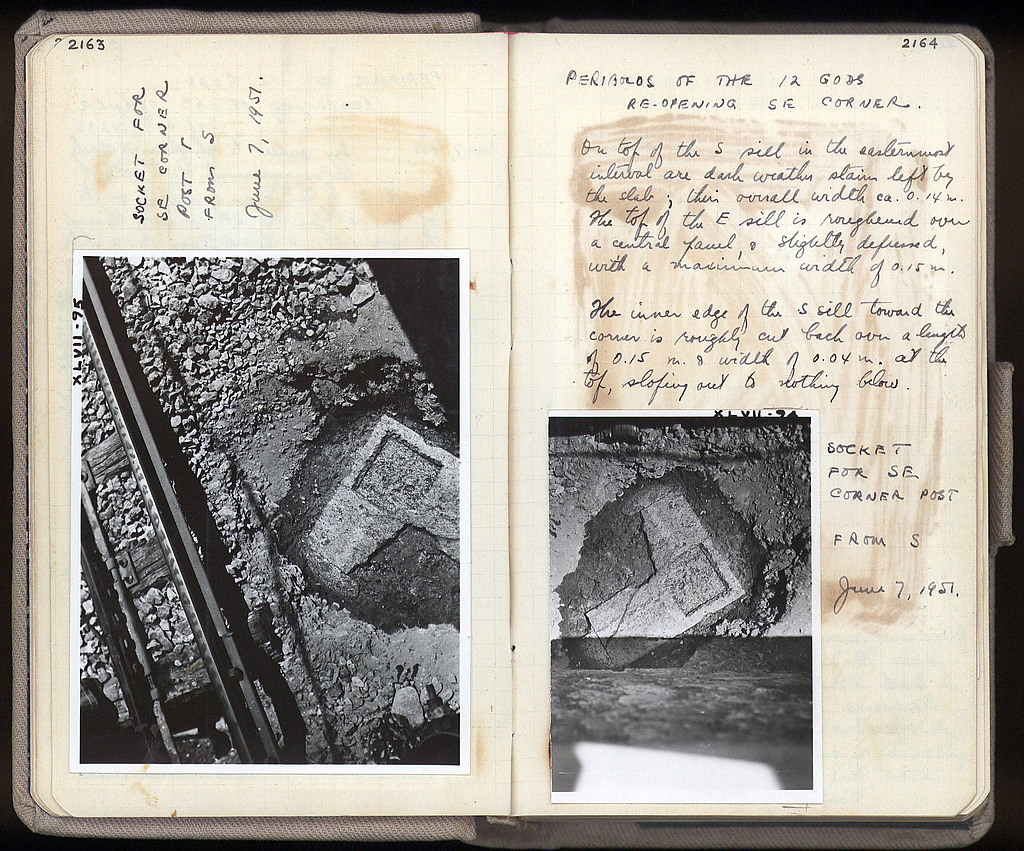 2163
SOCKET FOR
SE CORNER
POST
FROM S
June 7, 1951.
XLVII-95
2164
PERIBOLOS OF THE 12 GODS
RE-OPENING SE CORNER.
On top of the S sill in the easternmost
interval are dark weather stains left by
the slab; their overall width ca. 0.14 m.
The top of the E sill is roughened over
a central panel, & slightly depressed,
with a maximum width of 0.15 m.
The inner edge of the S sill toward the
corner is roughly cut back over a length
of 0.15 m. & width of 0.04 m. at the
top, sloping out to nothing below.
SOCKET
FOR SE
CORNER POST
FROM S
June 7, 1951.